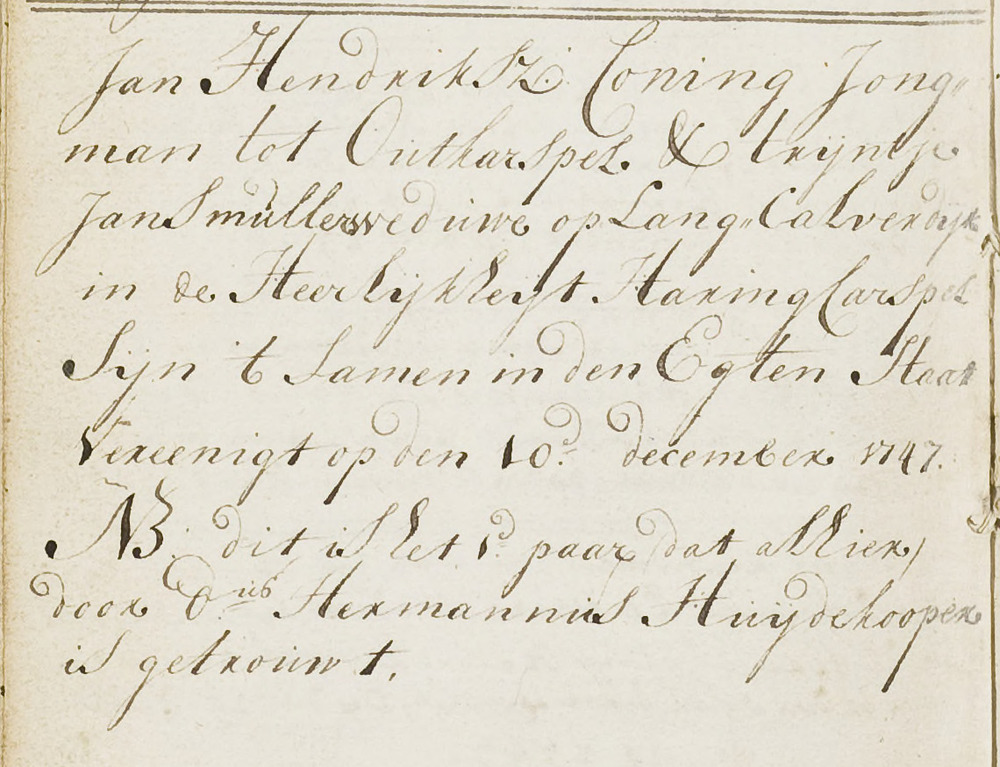 Jan Hendriksz. Coning Jong"
man tot Outkarspel & trijntje
Jans mùller weduwe op Lang"Calverdijk
in de Heerlijkheijt Haring Carspel
Sijn t Samen in den Egten Staat
Vereenigt op den 10d. december 1747.
NB. dit is het 1d. paar dat alhier,
door Dnus Hermannus Huijdekooper
is getrouwt.